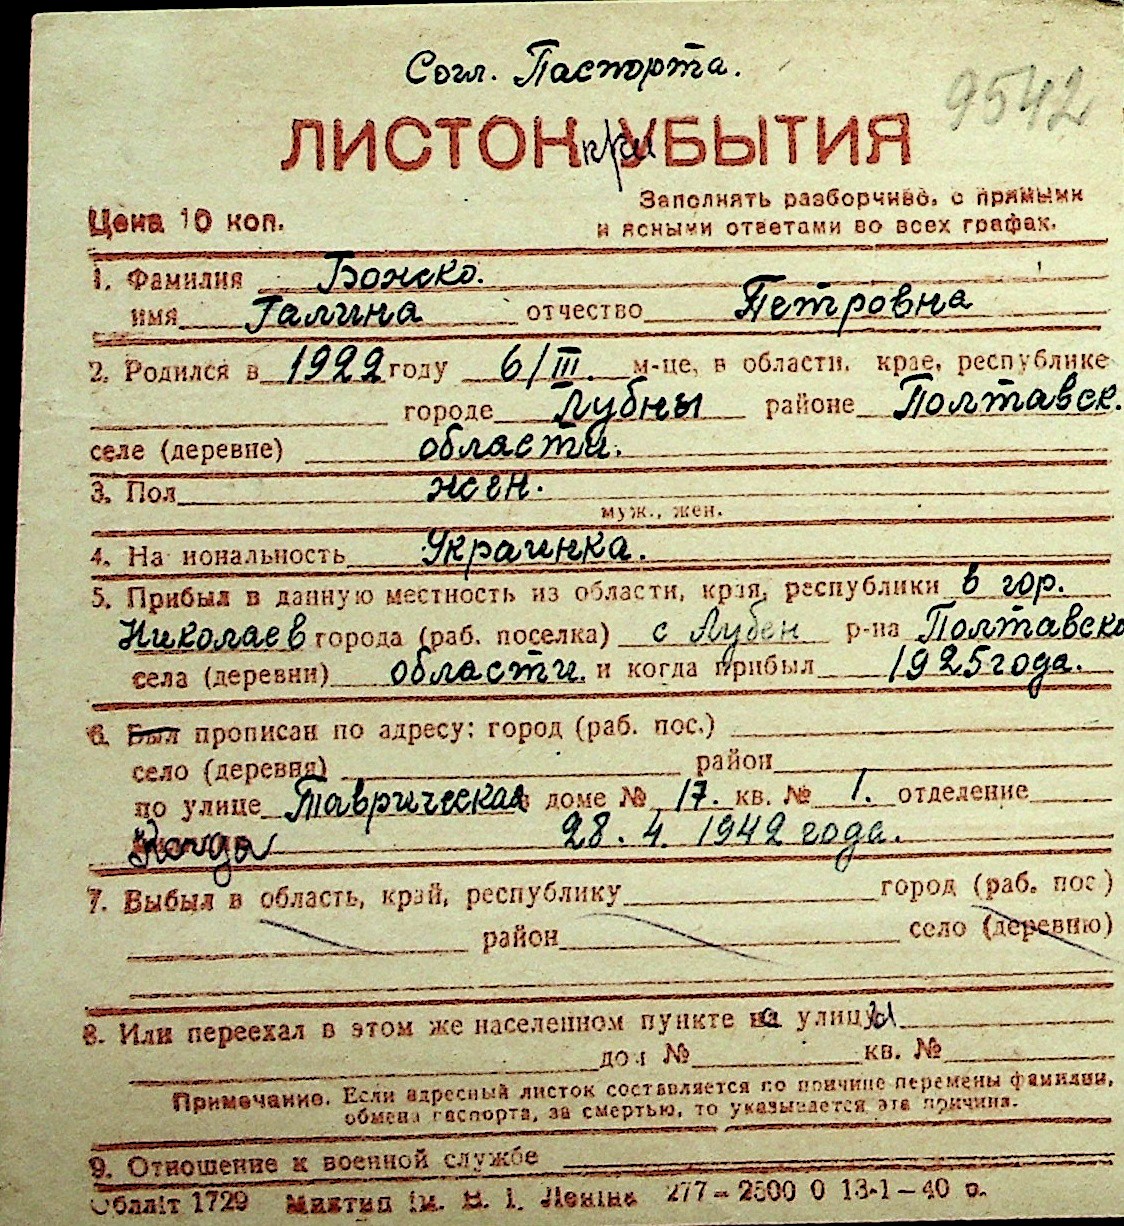 Согл. Паспорта.
9542
ЛИСТОК при УБЫТИЯ
Заполнять разборчиво, с прямыми
Цена 10 коп.
и ясными ответами во всех графах.
1. Фамилия Божко.
имя Галина отчество Петровна
2. Родился в 1922 году 6/III. м-це, в области, крае, республике
городе Лубны районе Полтавск.
селе (деревне) области.
3. Пол жен.
муж., жен.
4. На иональность Украинка.
5. Прибыл в данную местность из области, края, республики в гор.
Николаев города (раб. поселка) с Лубен р-на Полтавско
села (деревни) области. и когда прибыл 1925 года.
6. Был прописан по адресу: город (раб. пос.)
село (деревня) район
по улице Таврическая доме № 17. кв. № 1. отделение
Когда 28. 4. 1942 года.
7. Выбыл в область, край, республику город (раб. пос)
район село (деревню)
8. Или переехал в этом же населенном пункте на улицы
дом № кв. №
Примечание. Если адресный листок составляется по причине перемены фамилии,
обмена паспорта, за смертью, то указывается эта причина.
9. Отношение к военной службе
Обалліт 1729 Миктип ім. В. І. Леніна 277—2500 0 13-1—40 р.